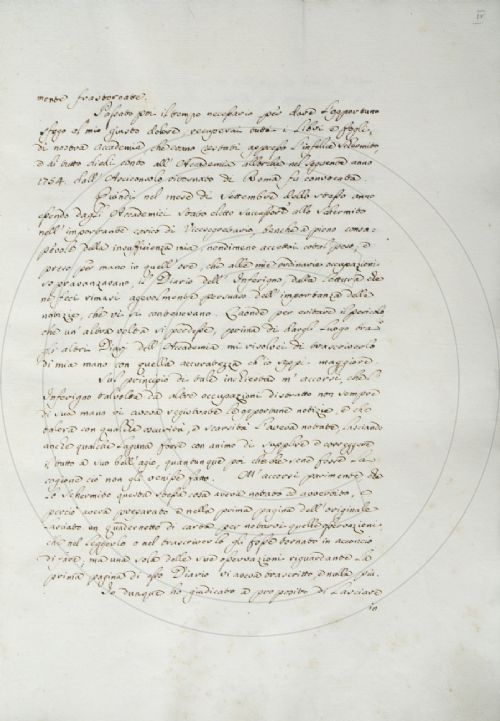 IV
mente frastornate.
Passato poi il tempo necessario per dare l'opportuno
sfogo al mio giusto dolore, recuperai tutti i Libri e fogli
di nostra Accademia che erano restati appresso l'infelice Schermito
e di tutto diedi conto all' Accademia allorchè nel seguente anno
1754. dall' Arciconsolo ritornato da Roma fu convocata.
Quindi nel mese di Settembre dello stesso anno
essendo dagli Accademici stato eletto successore allo Schermito
nell' importante carico di Vicesegretario, benchè a pieno consa-
pevole della insufficienza mia, nondimeno accettai cotal peso, e
preso per mano in quell' ore, che alle mie ordinarie occupazioni
sopravanzavano, il Diario dell' Inferigno, dalla lettura che
ne feci rimasi agevolmente persuaso dell' importanza delle
notizie, che vi si contenevano. Laonde per evitare il pericolo
che un' altra volta si perdesse, prima di dargli luogo tra
gli altri Diarj dell' Accademia mi risolvei di trascriverlo
di mia mano con quella accuratezza ch' io seppi maggiore.
Sul principio di tale incombenza m' accorsi, che l'
Inferigno talvolta da altre occupazioni distratto non sempre
di sua mano vi aveva registrate le opportune notizie, e che
talora con qualche oscurità, e scarsità l'aveva notate, lasciando
anche qualche lacuna forse con animo di supplire e correggere
il tutto a suo bell' agio, quantunque poi che che se ne fosse la
cagione ciò non gli venisse fatto. M' accorsi parimente che
lo Schermito questa stessa cosa aveva notato ed avvertito, e
perciò aveva preparato e nella prima pagina dell' originale
lasciato un quadernetto di carta per notarvi quelle osservazioni,
che nel leggerlo o nel trascriverlo gli fosse tornato in acconcio
di fare, ma una sola delle sue osservazioni riguardante la
prima pagina di esso Diario vi aveva trascritto e nulla più.
Io dunque ho giudicato a proposito di lasciare
in